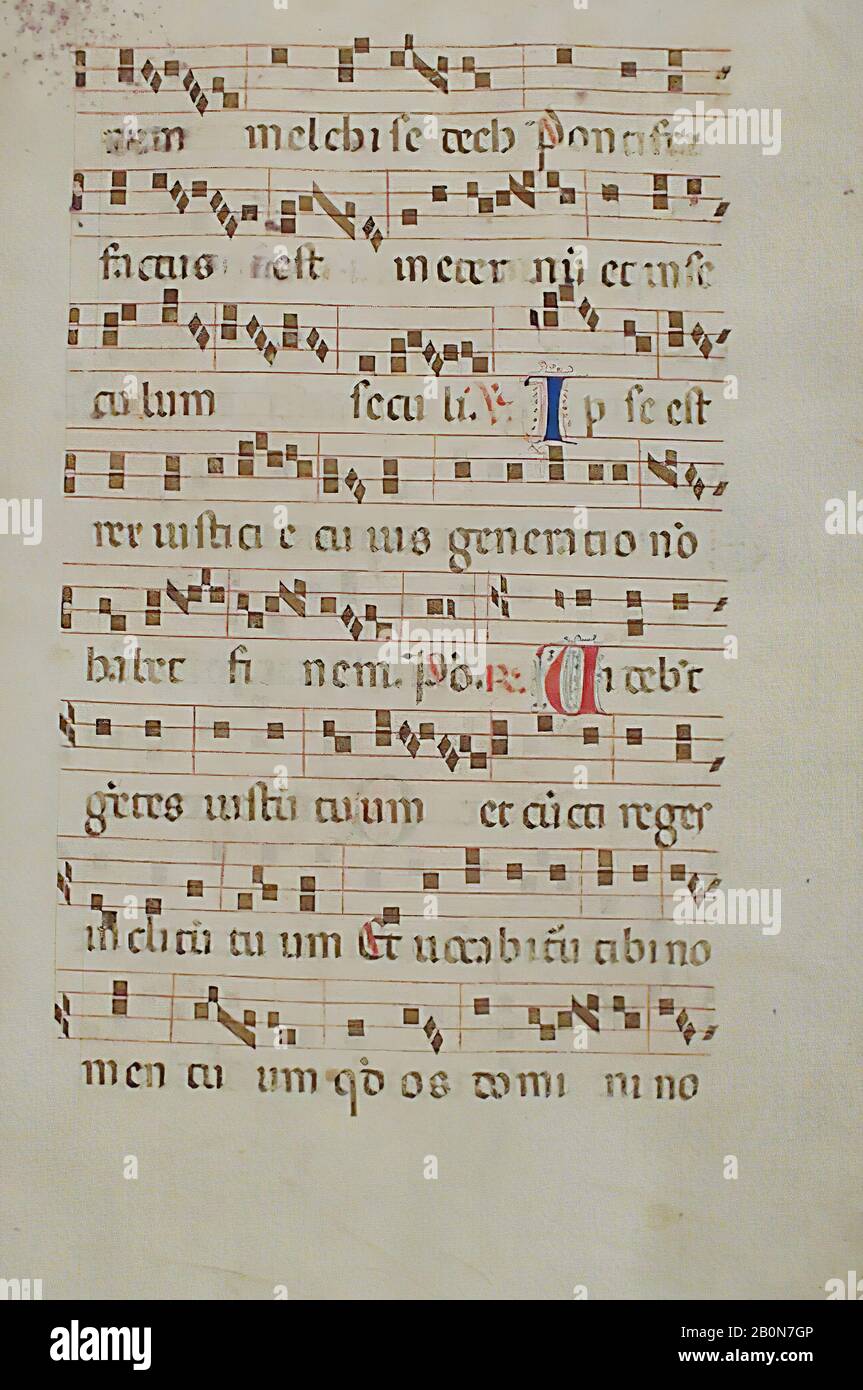 nem melchisedech Pontifex
factus est in eternū et in se
culum seculi. V. Ipse est
rex iusticie cuius generatio nō
habet finem. Pō. R. Uidebūt
gētes iustū tuum et cūcti reges
inclitū tuum Et uocabitū tibi no
men tuum qd os domini no
alamy
Image ID: 2B0N7GP
www.alamy.com